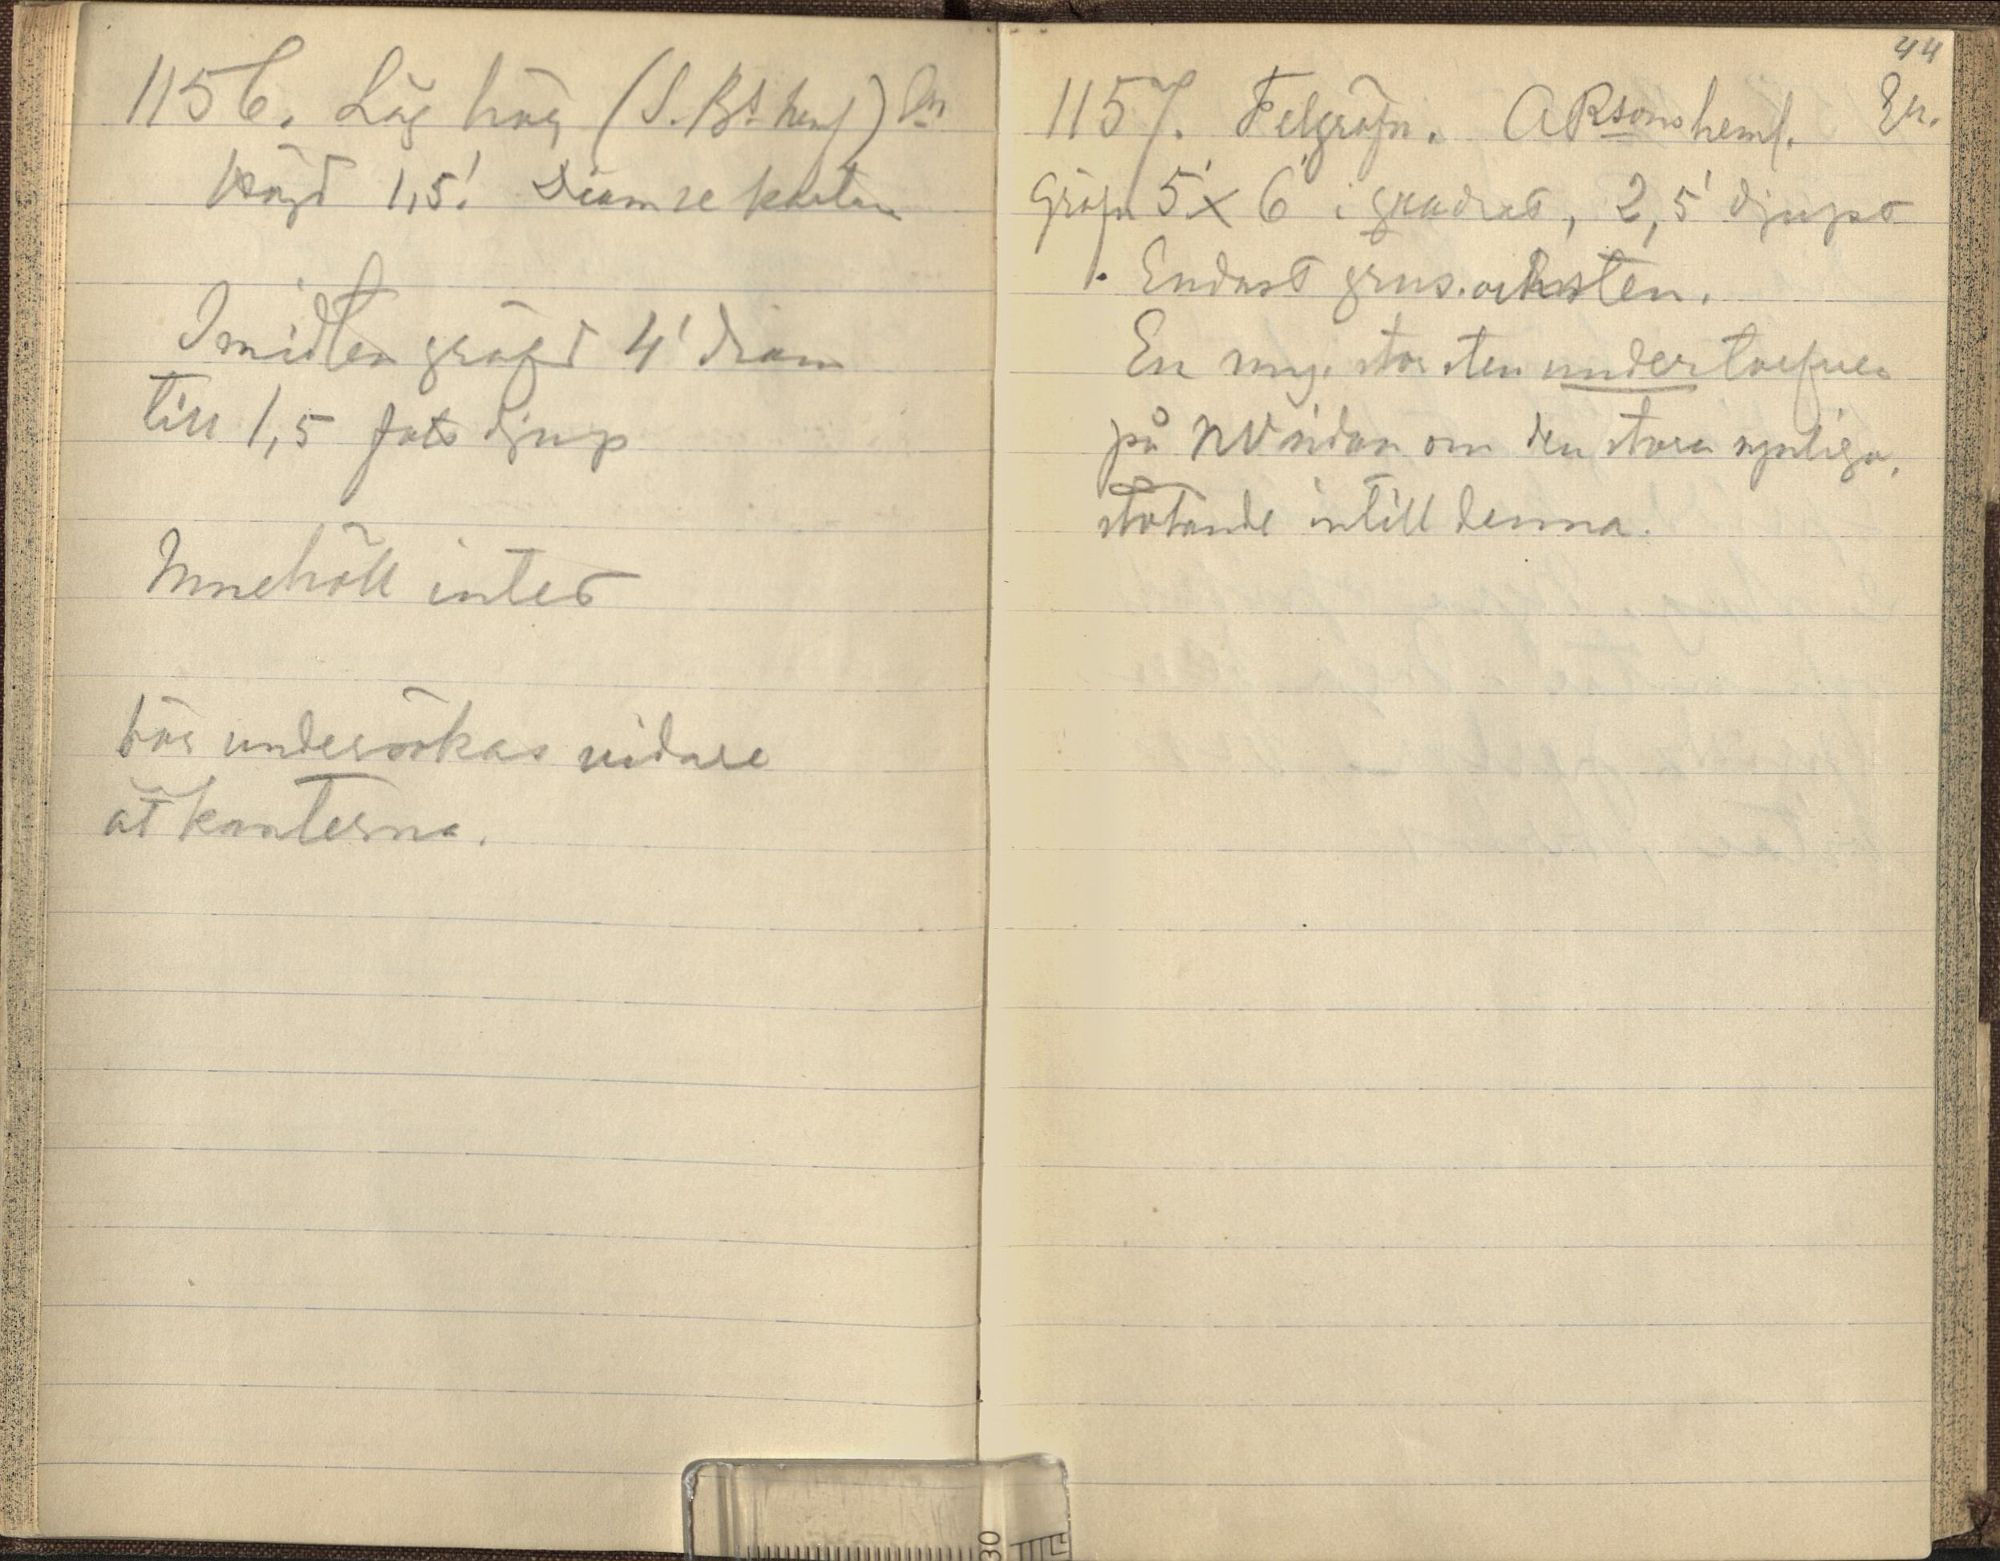 1156. Låg hög (S. Bs heml)
Höjd 1,5'. Diam se kartan
I midten gräfd 4' diam
till 1,5 fots djup
Innehöll intet
bör undersökas vidare
åt kanterna.
44
1157. Felgräfn. A Rsons heml. En.
Gräfn 5' x 6' i quadrat, 2,5' djupt
Endast grus och sten.
En myc. stor sten under torfven
på NV sidan om den stora synliga,
stötande intill denna.
30